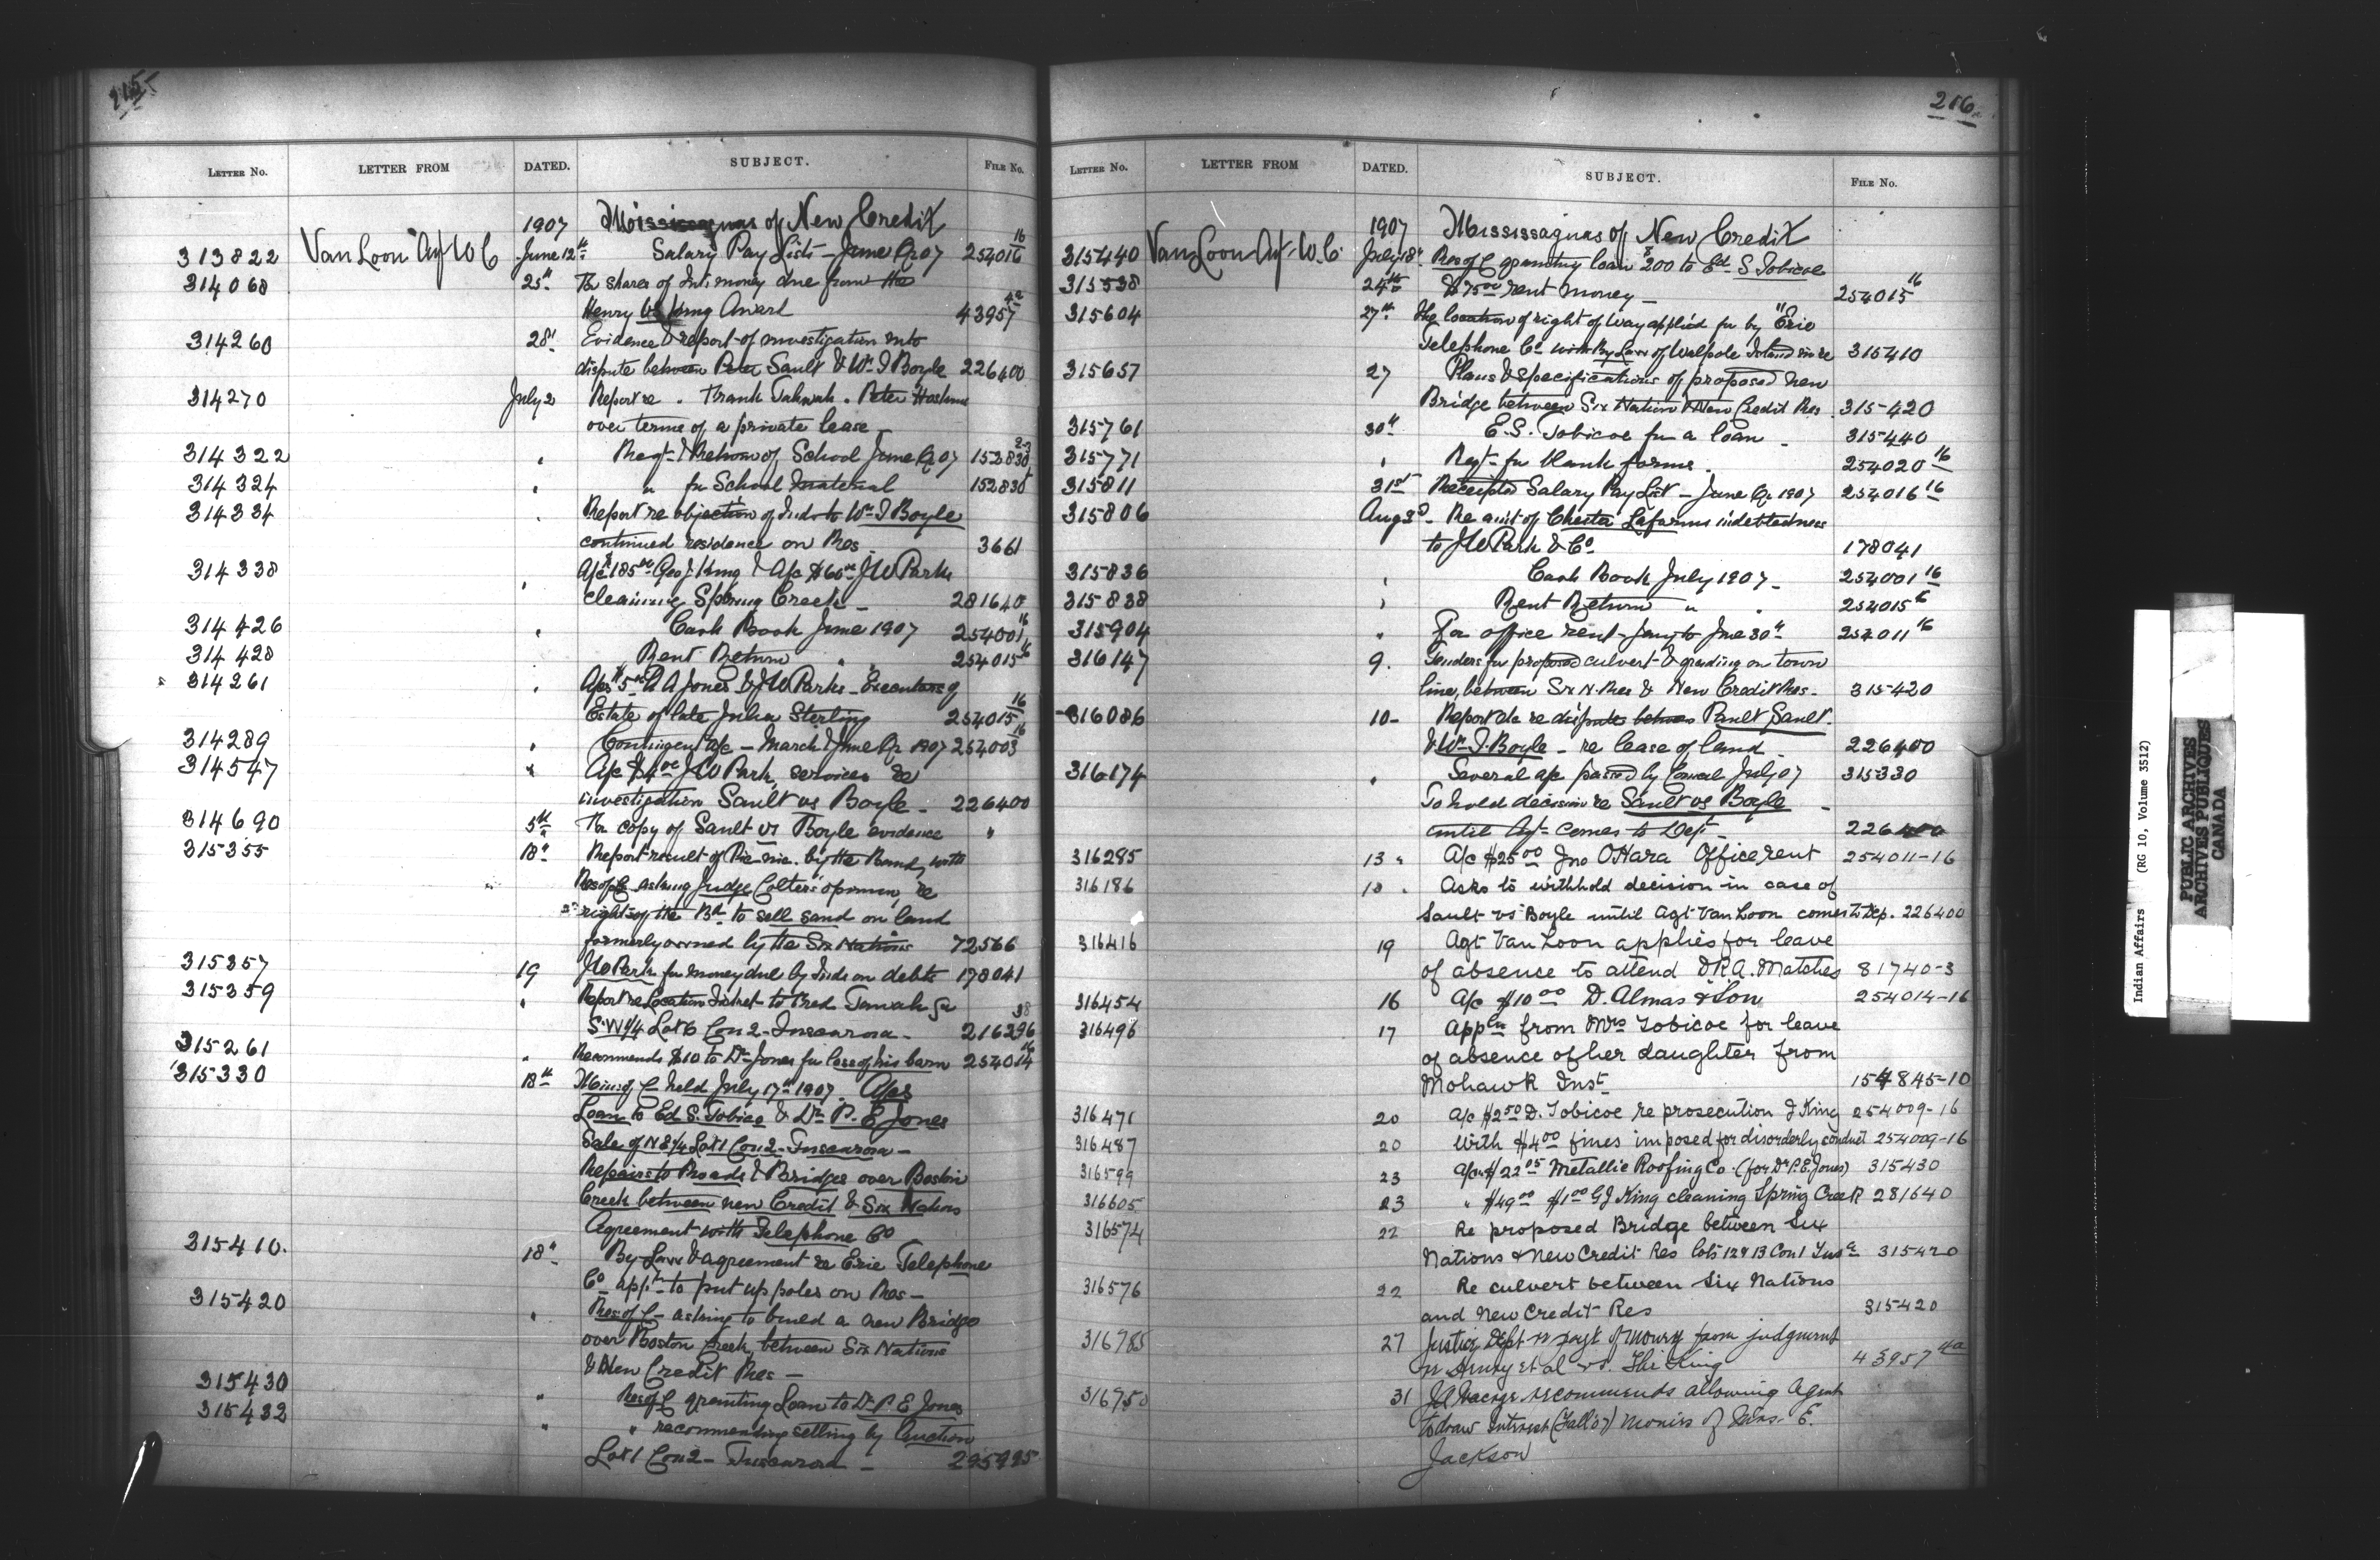 215
LETTER NO. LETTER FROM DATED. SUBJECT. FILE NO.
1907 Mississaguas of New Credit
313822 Van Loon Agt W C June 12th Salary Pay Lists - June Qr 07 254016 16
314068 25th Re shares of Int. money due from the
Henry vs King Award 43957 4a
314260 28th Evidence & report of investigation into
dispute between Peter Sault & Wm I Boyle 226400
314270 July 2 Report re . Frank Tahwah . Peter Hoskins
over terms of a private lease -
314322 " Regt. & Return of School June Qr 07 152830 2-3
314324 " " for School Material 152830
314334 " Report re objection of Inds to Wm I Boyle
continued residence on Res. 3661
314338 " A/c $185.00 Geo J. King & A/c $60.00 J W Park
cleaning Spring Creek - 281640
314426 " Cash Book June 1907 254001 16
314428 Rent Return " " 254015 16
314261 " A/cs $5.00 A A Jones & J W Parks - Executors of
Estate of late Julia Sterling 254015 16
314289 " Contingent a/c - March & June Qr 1907 254003 16
314547 " A/c $4.00 J W Park services re
investigation Sault vs Boyle - 226400
314690 5th For copy of Sault vs Boyle evidence "
315355 18th Report result of Pic-nic by the Band, with
Res of C asking Judge Colter's opinion, re
rights of the Bd to sell sand on land
formerly owned by the Six Nations 72566
315357 19 J W Park for money due by Inds on debts 178041
315359 " Report re Location Ticket to Fred
S.W 1/4 Lot 6 Con 2 - Tuscarora - 216296 38
315261 " Recommends $10 to Dr Jones for lease of his barn 254014 16
315330 18th Mins of C held July 17th 1907. A/cs
Loan to Ed S. Tobico & Dr P. E Jones
Sale of N E 1/4 Lot 1 Con 2 - Tuscarora -
Repairs to Roads & Bridges over Boston
Creek between new Credit & Six Nations
Agreement with Telephone Co
315410. 18th By-Law & agreement re Erie Telephone
Co appn to put up poles on Res -
315420 " Res of C - asking to build a new Bridge
over Boston Creek, between Six Nations
& New Credit Res -
315430 " Res of C granting Loan to Dr P. E Jones
315432 " " recommending selling by Auction
Lot 1 Con 2 - Tuscarora - 295995
216
LETTER NO. LETTER FROM DATED. SUBJECT. FILE NO.
1907 Mississaguas of New Credit
315440 Van Loon Agt. W. C. July 18th Res of C granting loan $200 to Ed S Tobicoe
315538 24th $75.00 rent money - 254015 16
315604 27th Re location of right of way applied for by "Erie
Telephone Co with By Law of Walpole Island in re 315410
315657 27 Plans & specifications of proposed new
Bridge between Six Nation & New Credit Res. 315420
315761 30th E. S. Tobicoe for a loan - 315440
315771 " Regt. for blank forms. 254020 16
315811 31st Receipted Salary Pay List - June Qr 1907 254016 16
315806 Aug 3d Re amt of Chester Laforms indebtedness
to J W Park & Co 178041
315836 " Cash Book July 1907 - 254001 16
315838 " Rent Return " " 254015 16
315904 " For office rent - Jany to June 30th 254011 16
316147 9. Tenders for proposed culvert & grading on town
line, between Six N. Res & New Credit Res - 315420
316086 10 - Report &c re disputes between Sault.
& Wm I. Boyle - re lease of land - 226400
316174 " Several a/c passed by Council July 07 315330
To hold decision re Sault vs Boyle -
until Agt. comes to Dept - 226400
316285 13 " A/c $25.00 Jno O'Hara Office rent 254011-16
316186 10 . Asks to withhold decision in case of
Sault vs Boyle until Agt Van Loon comes to Dep. 226400
316416 19 Agt Van Loon applies for leave
of absence to attend D.R.A. Matches 81740-3
316454 16 A/c $10.00 D. Almas & Son 254014-16
316496 17 Appln from Mrs Tobicoe for leave
of absence of her daughter from
Mohawk Inst. 154845-10
316471 20 A/c $2.50 D. Tobicoe re prosecution J King 254009-16
316487 20 With $4.00 fines imposed for disorderly conduct 254009-16
316599 23 A/c $22.05 Metallic Roofing Co. (for Dr P.E. Jones) 315430
316605 23 " $49.00 $1.00 G J King cleaning Spring Creek 281640
316574 22 Re proposed Bridge between Six
Nations & New Credit Res lots 12 & 13 Con 1 Tusca 315420
316576 22 Re culvert between Six Nations
and New Credit Res 315420
316785 27 Justice Dept re payt of money from judgment
in Henry et al vs. The King 43957 4a
316750 31 recommends allowing Agent
to draw Interest (Fall 07) monies of Mrs. E.
Jackson
Indian Affairs (RG 10, Volume 3512)
PUBLIC ARCHIVES
ARCHIVES PUBLIQUES
CANADA